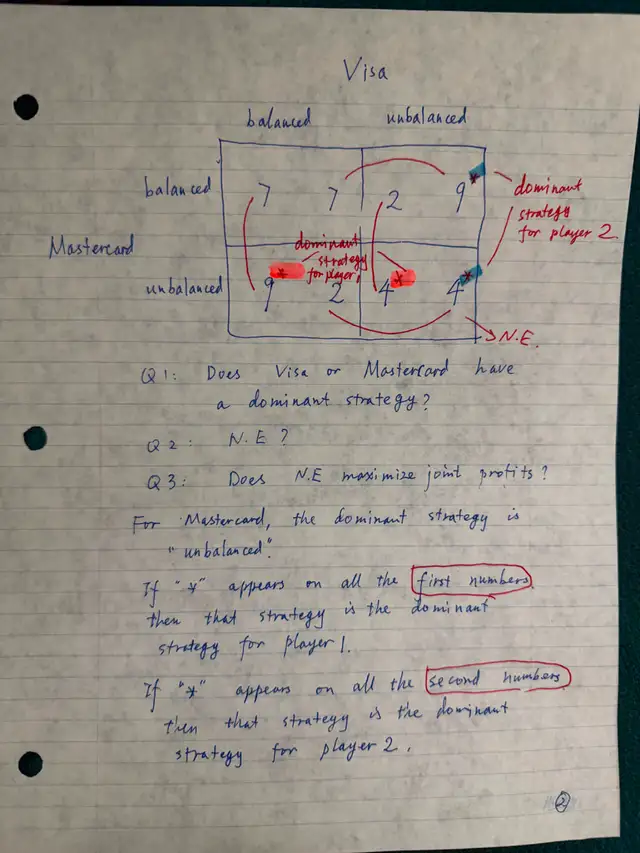 Visa
balanced unbalanced
balanced 7 7 2 9*
dominant
strategy
for player 2
Mastercard
dominant
strategy
for player 1
unbalanced 9* 2 4* 4*
N.E.
Q1: Does Visa or Mastercard have
a dominant strategy?
Q2: N.E?
Q3: Does N.E maximize joint profits?
For Mastercard, the dominant strategy is
"unbalanced".
If "*" appears on all the first numbers
then that strategy is the dominant
strategy for player 1.
If "*" appears on all the second numbers
then that strategy is the dominant
strategy for player 2.
2